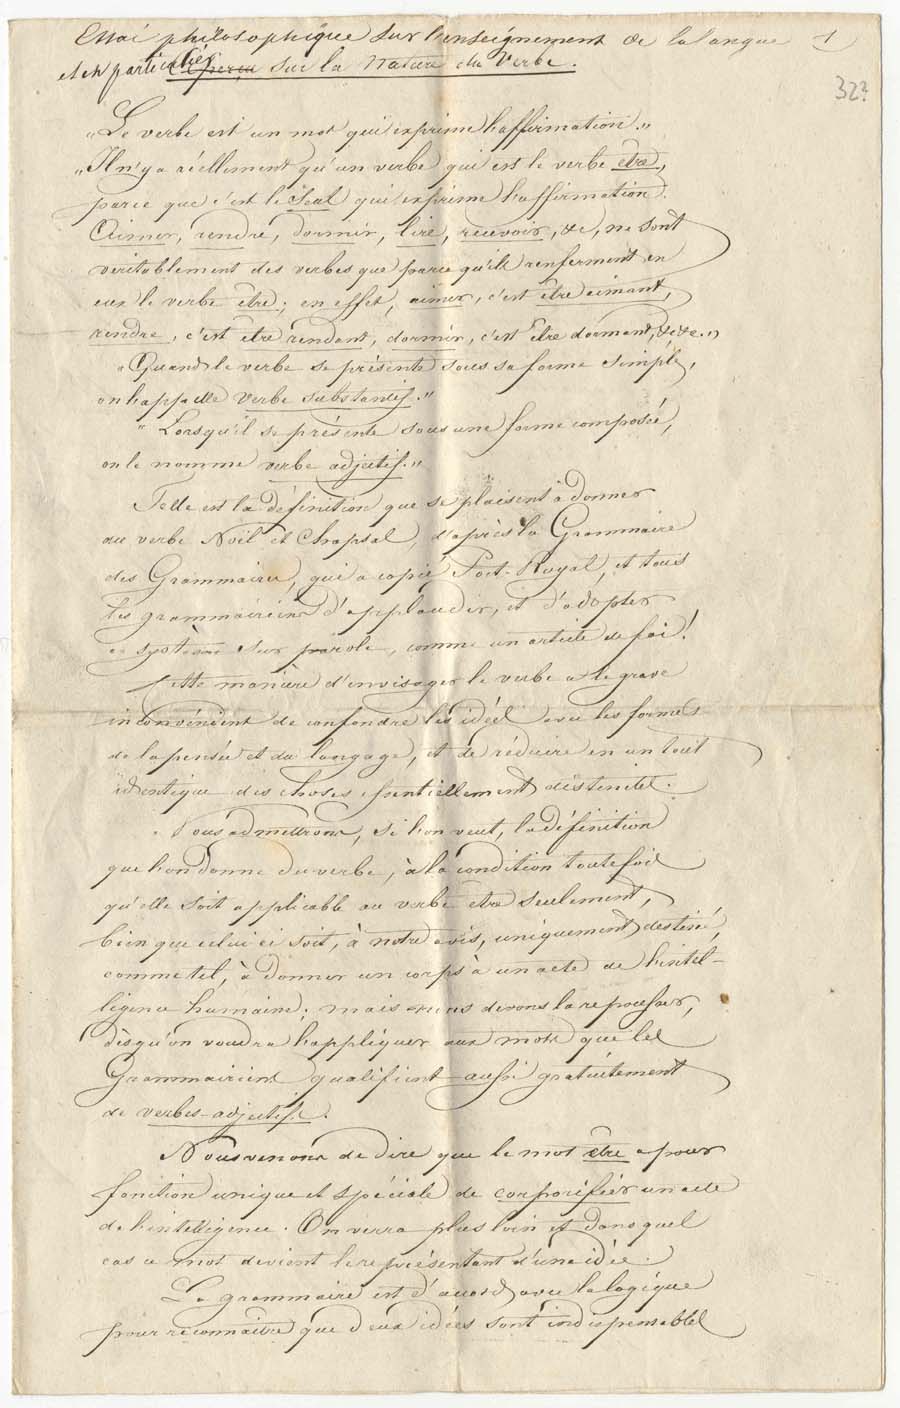 Essai philosophique sur l'enseignement de la langue 1
et en particulier Aperçu sur la Nature du Verbe.
323
"Le verbe est un mot qui exprime l'affirmation."
"Il n'y a réellement qu'un verbe qui est le verbe être,
parce que c'est le seul qui exprime l'affirmation.
Aimer, rendre, dormir, lire, recevoir, &c, ne sont
véritablement des verbes que parce qu'ils renferment en
eux le verbe être; en effet, aimer, c'est être aimant,
rendre, c'est être rendant, dormir, c'est être dormant, &c&c."
"Quand le verbe se présente sous sa forme simple,
on l'appelle verbe substantif."
"Lorsqu'il se présente sous une forme composée,
on le nomme verbe adjectif."
Telle est la définition que se plaisent à donner
au verbe Noël et Chapsal, d'après la Grammaire
des Grammaires, qui a copié Port-Royal, et tous
les grammairiens d'applaudir, et d'adopter
ce système sur parole, comme un article de foi!
Cette manière d'envisager le verbe a le grave
inconvénient de confondre les idées avec les formes
de la pensée et du langage, et de réduire en un tout
identique des choses essentiellement distinctes.
Nous admettrons, si l'on veut, la définition
que l'on donne du verbe, à la condition toutefois
qu'elle soit applicable au verbe être seulement,
bien que celui ci soit, à notre avis, uniquement destiné,
comme tel, à donner un corps à un acte de l'intel-
ligence humaine; mais nous devons la repousser,
dès qu'on voudra l'appliquer aux mots que les
Grammairiens qualifient aussi gratuitement
de verbes-adjectifs.
Nous venons de dire que le mot être a pour
fonction unique et spéciale de corporifier un acte
de l'intelligence. On verra plus loin et dans quel
cas ce mot devient le représentant d'une idée.
La grammaire est d'accord avec la logique
pour reconnaître que deux idées sont indispensables